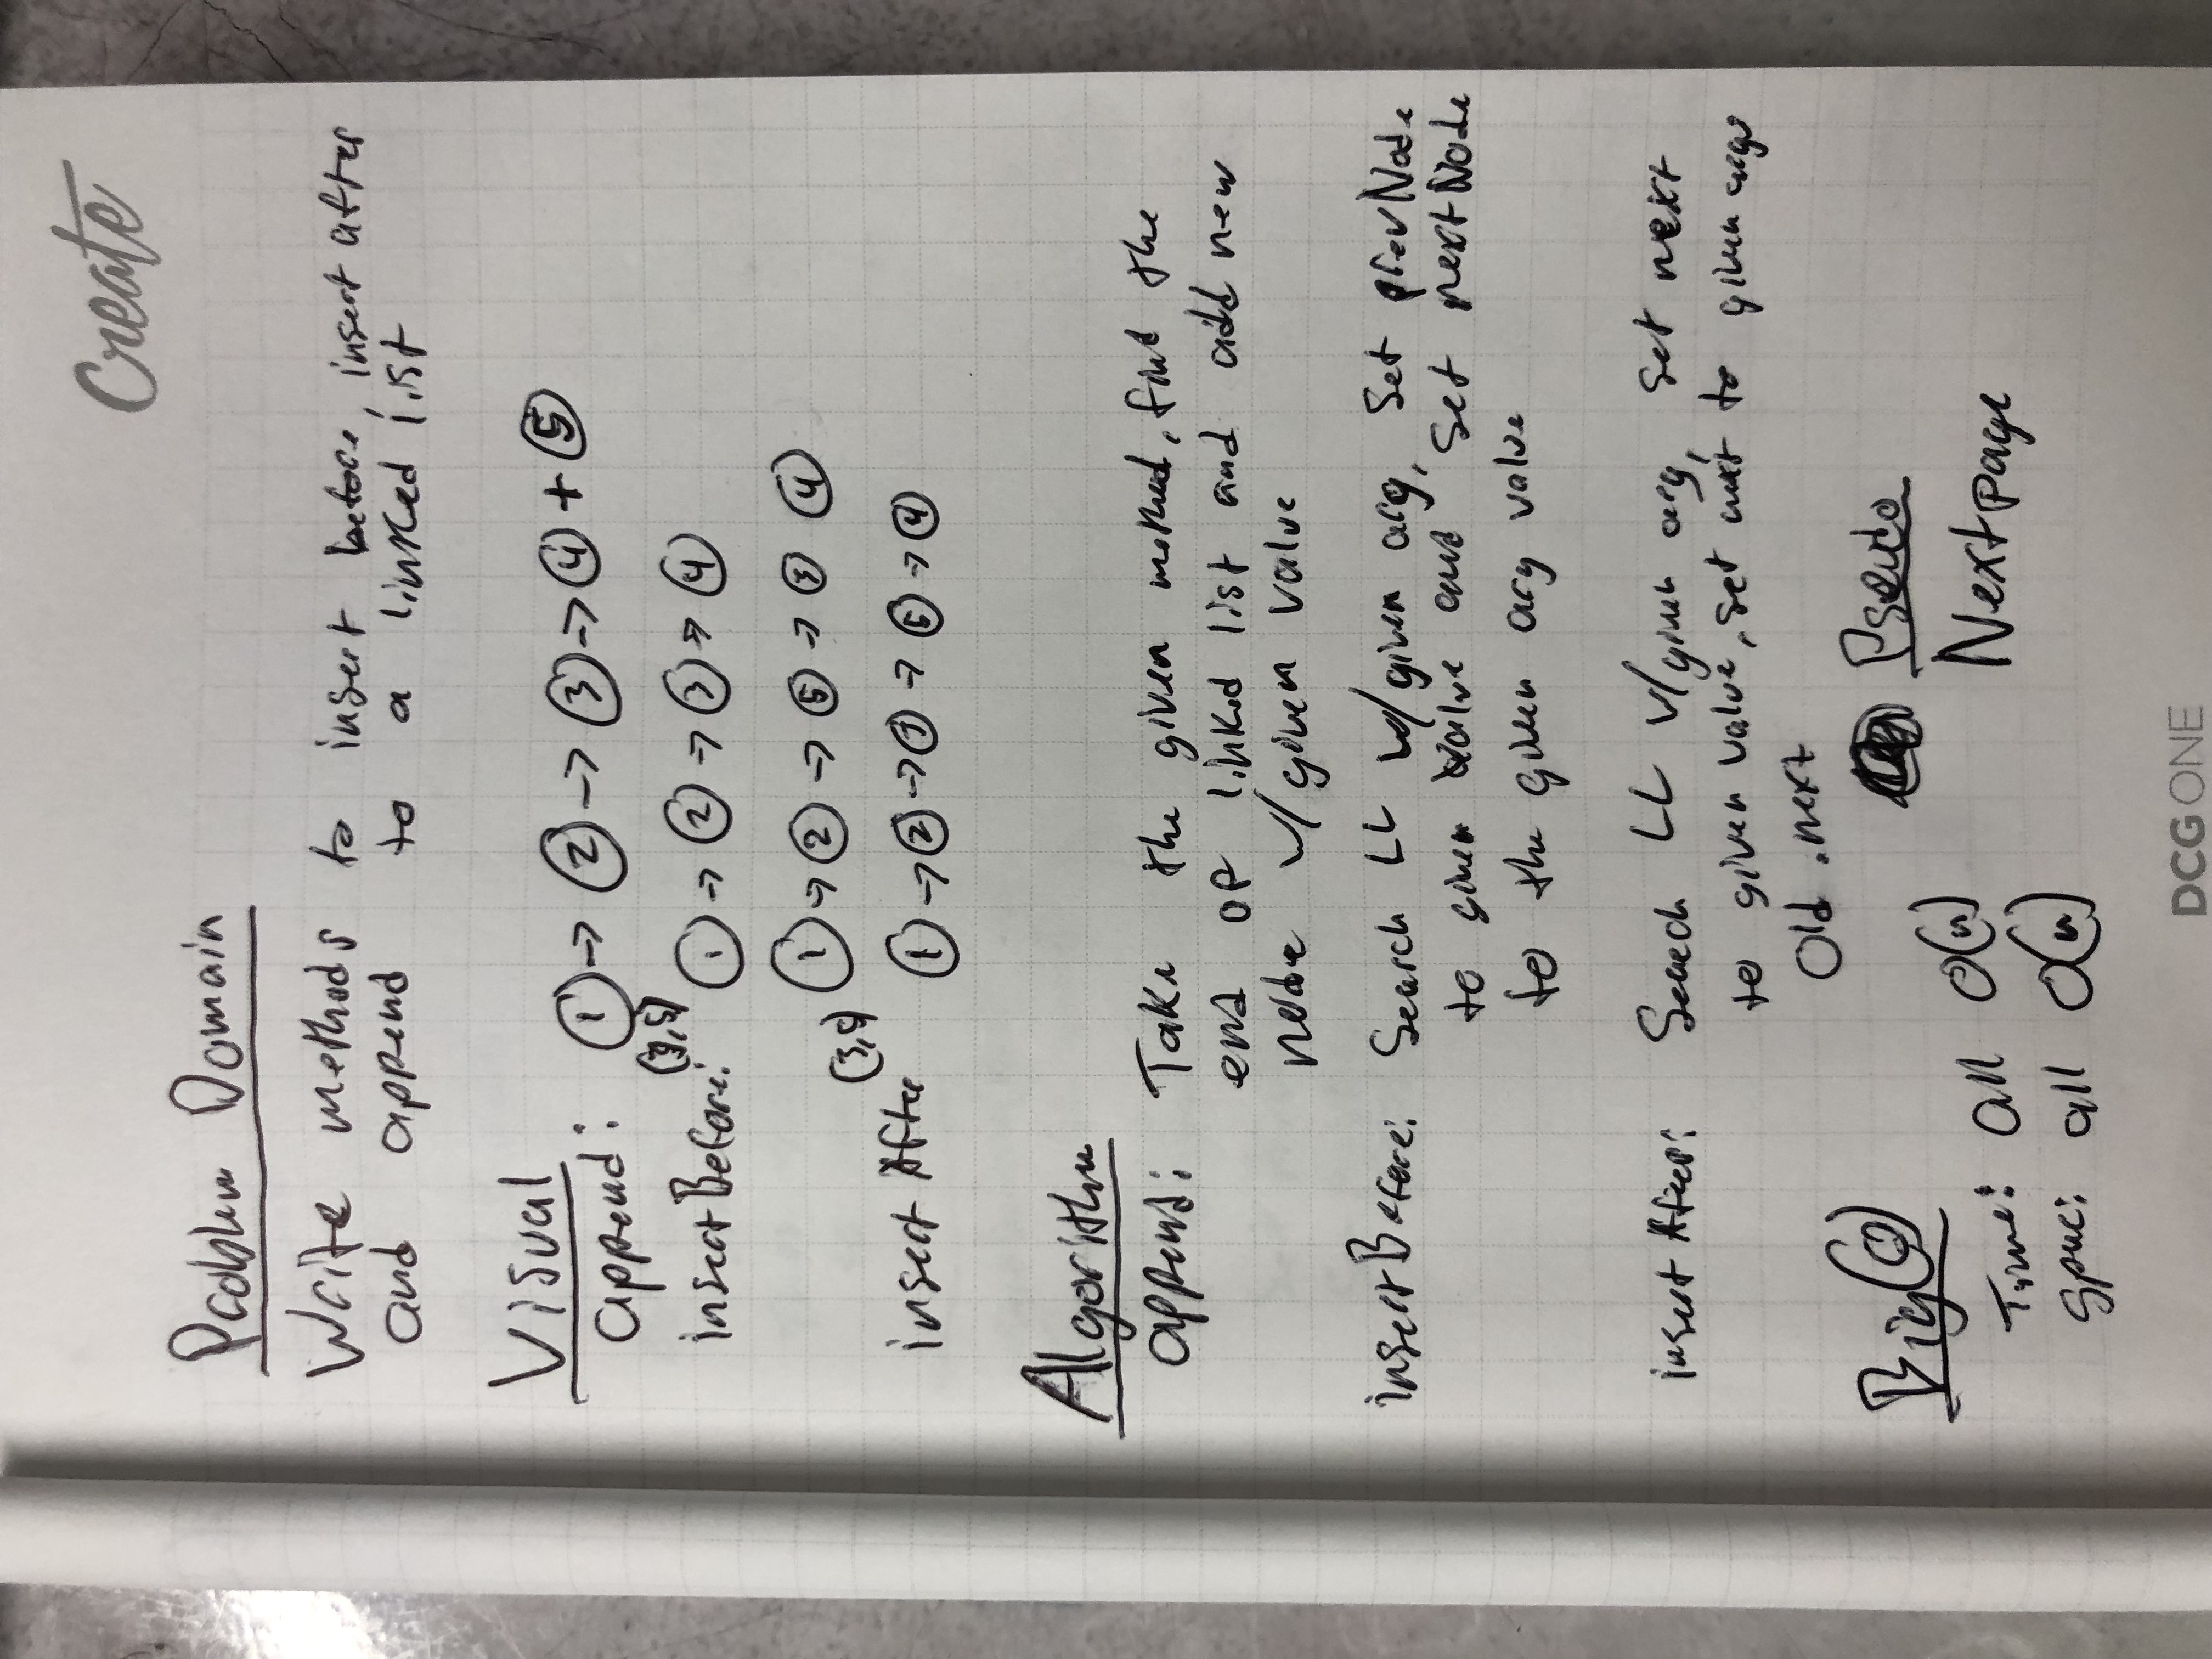 Create
Problem Domain
Write methods to insert before, insert after
and append to a linked list
Visual
append: 1 -> 2 -> 3 -> 4 + 5
(3,5)
insertBefore: 1 -> 2 -> 3 -> 4
1 -> 2 -> 5 -> 3 4
(3,5)
insert After 1 -> 2 -> 3 -> 5 -> 4
Algorithm
append: Take the given method, find the
end of linked list and add new
node w/ given value
insertBefore: Search LL w/ given arg, Set prevNode
to given value and set nextNode
to the given arg value
insert After: Search LL w/ given arg, set next
to given value, set next to given args
Old .next
Big(O)
Time: all O(n)
Space: all O(n)
Pseudo
Next page
DCG ONE